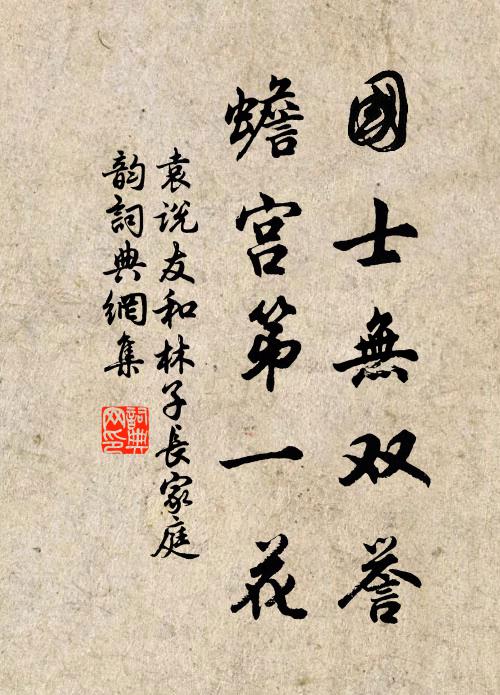 國士無双誉
蟾宮第一花
袁说友和林子長家庭
韵詞典網集
詞典
网印